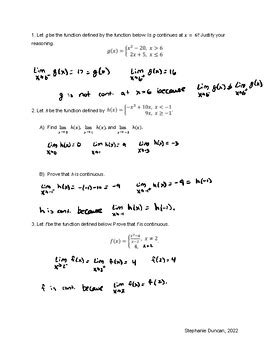 1. Let g be the function defined by the function below. Is g continuous at x = 6? Justify your
reasoning.
g(x) = { x² − 20, x > 6
2x + 5, x ≤ 6
lim x→6⁻ g(x) = 17 = g(6) lim x→6⁺ g(x) = 16
g is not cont. at x=6 because lim x→6⁻ g(x) ≠ lim x→6⁺ g(x)
2. Let h be the function defined by h(x) = { −x² + 10x, x < −1
9x, x ≥ −1
A) Find lim h(x), lim h(x), and lim h(x).
lim x→0 h(x) = 0 lim h(x) = 9 lim h(x) =
B) Prove that h is continuous.
lim x→-1⁻ h(x) = -(-1)-10 = -9 lim x→-1⁺ h(x) = -9 = h(-1)
h is cont. because lim x→-1 h(x) = h(-1)
3. Let f be the function defined below. Prove that f is continuous.
f(x) = { x≠2
4, x=2
lim x→2⁻ f(x) = lim x→2⁺ f(x) = 4 f(2) = 4
f is cont. because lim x→2 f(x) = f(2).
Stephanie Duncan, 2022